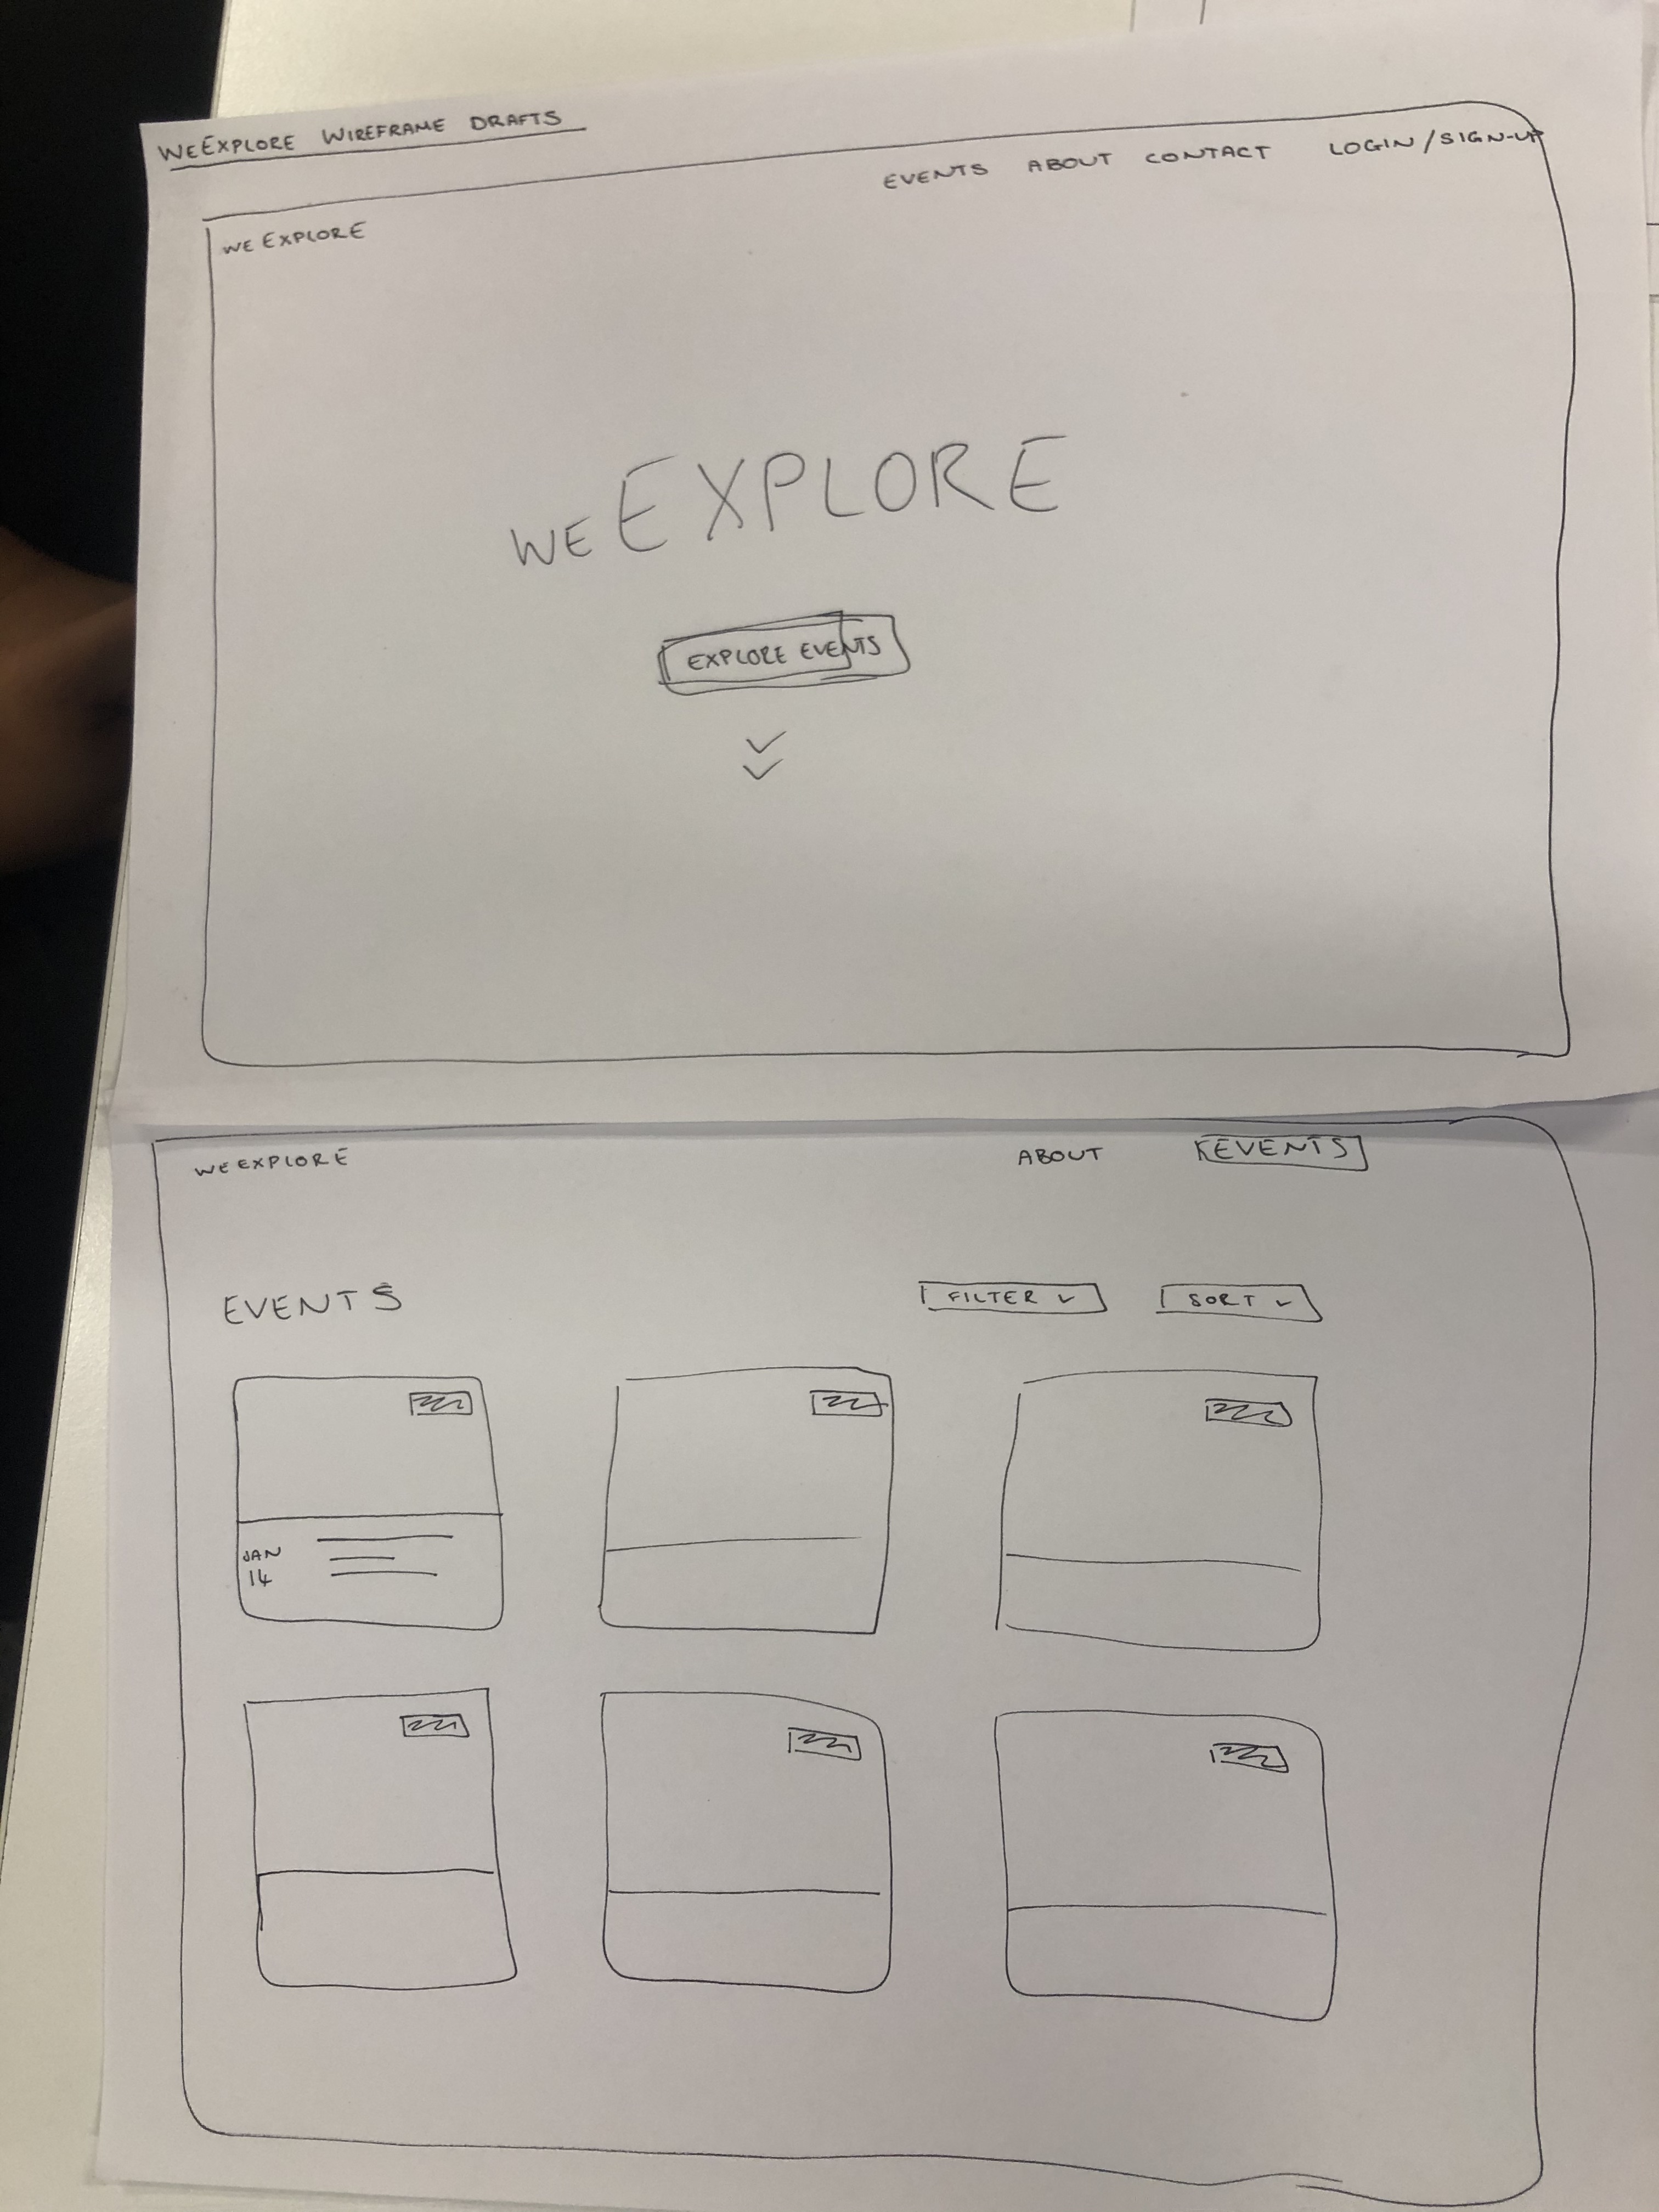 WEEXPLORE WIREFRAME DRAFTS
EVENTS ABOUT CONTACT LOGIN/SIGN-UP
WE EXPLORE
WE EXPLORE
EXPLORE EVENTS
WEEXPLORE ABOUT EVENTS
EVENTS FILTER SORT
JAN
14